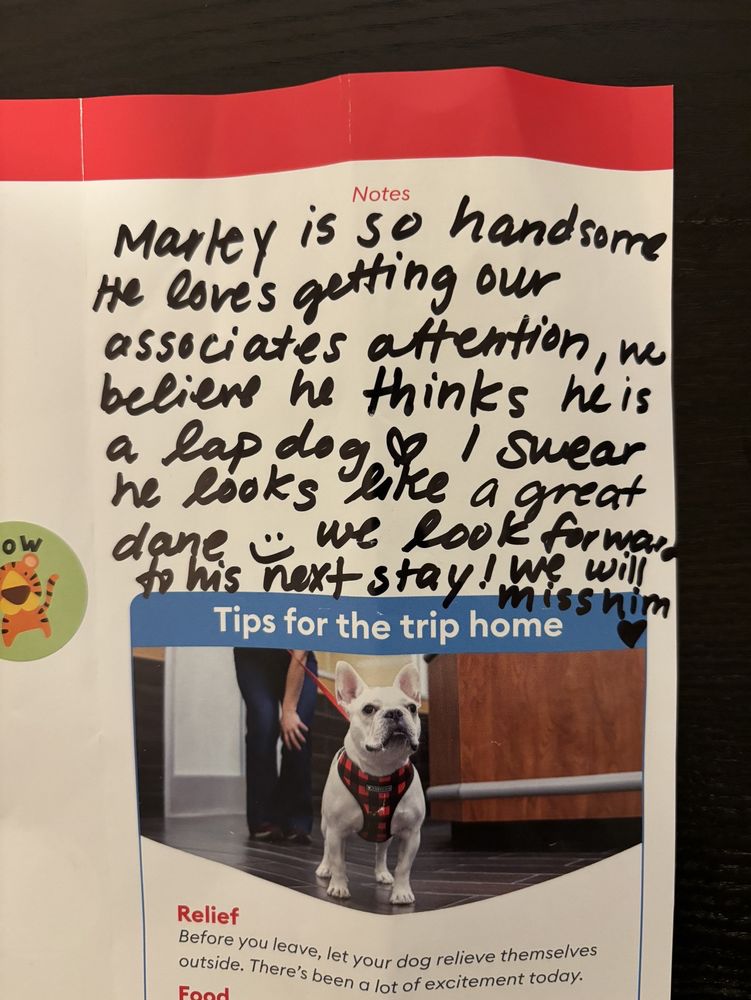 Notes
Marley is so handsome
He loves getting our
associates attention, we
believe he thinks he is
a lap dog ♡ I swear
he looks like a great
dane :) we look forward
to his next stay! we will
miss him
♥
OW
Tips for the trip home
Relief
Before you leave, let your dog relieve themselves
outside. There's been a lot of excitement today.
Food